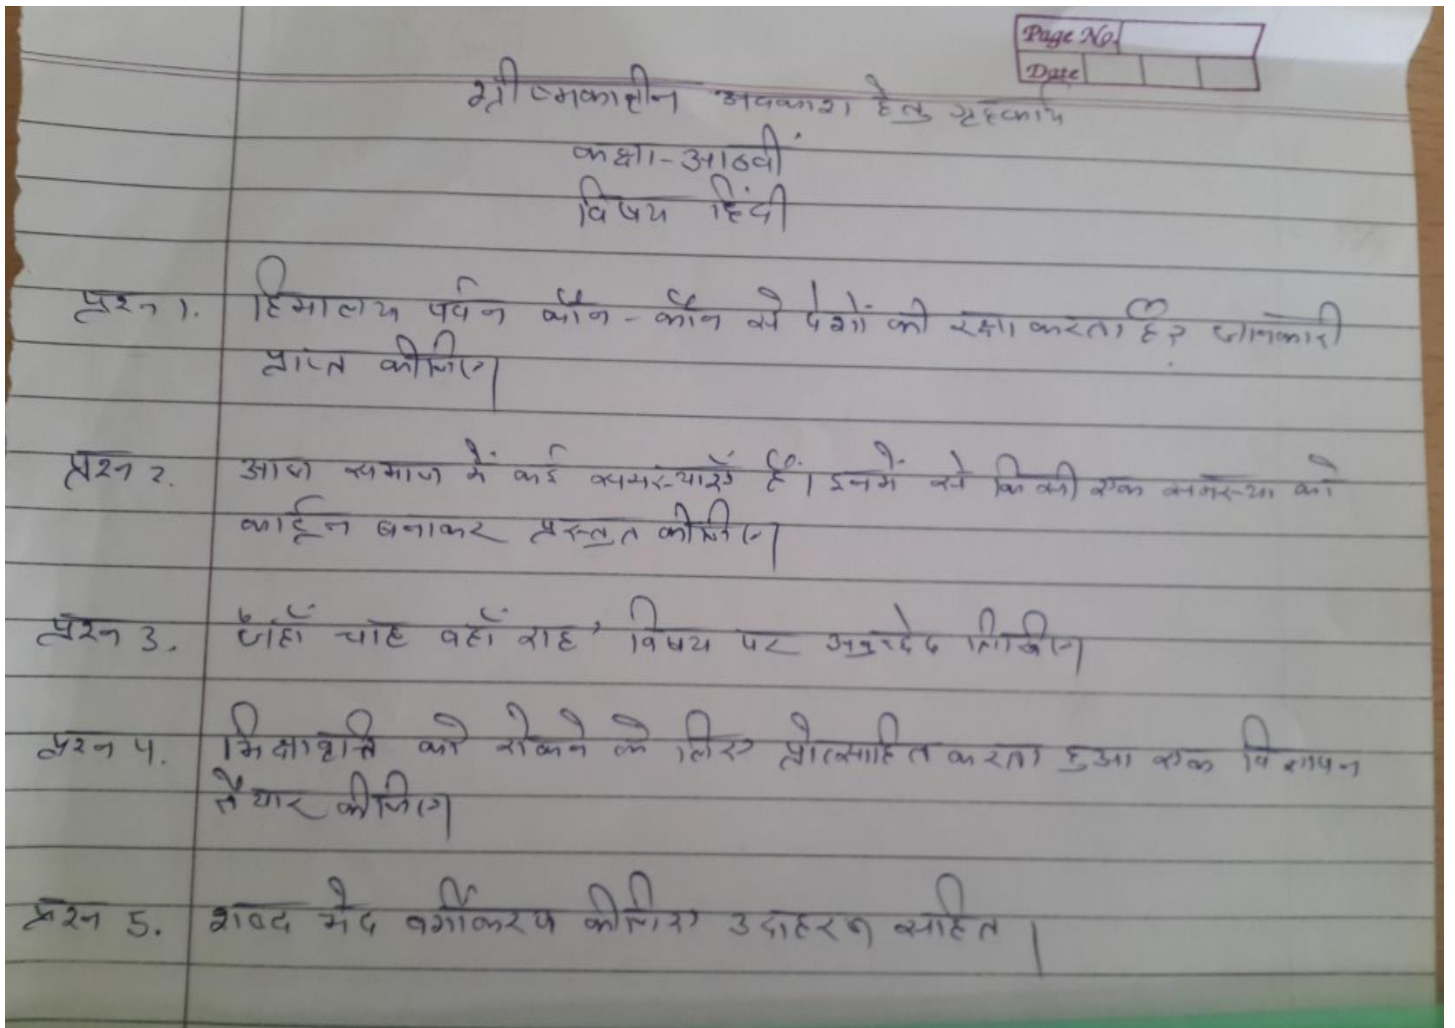 Page No.
Date
ग्रीष्मकालीन अवकाश हेतु गृहकार्य
कक्षा - आठवीं
विषय हिंदी
प्रश्न 1. हिमालय पर्वत कौन - कौन से देशों की रक्षा करता है? जानकारी
प्राप्त कीजिए।
प्रश्न 2. आज समाज में कई समस्याएँ हैं। इनमें से किसी एक समस्या को
कार्टून बनाकर प्रस्तुत कीजिए।
प्रश्न 3. 'जहाँ चाह वहाँ राह' विषय पर अनुच्छेद लिखिए।
प्रश्न 4. भिक्षावृत्ति को रोकने के लिए प्रोत्साहित करता हुआ एक विज्ञापन
तैयार कीजिए।
प्रश्न 5. शब्द भेद वर्गीकरण कीजिए उदाहरण सहित।